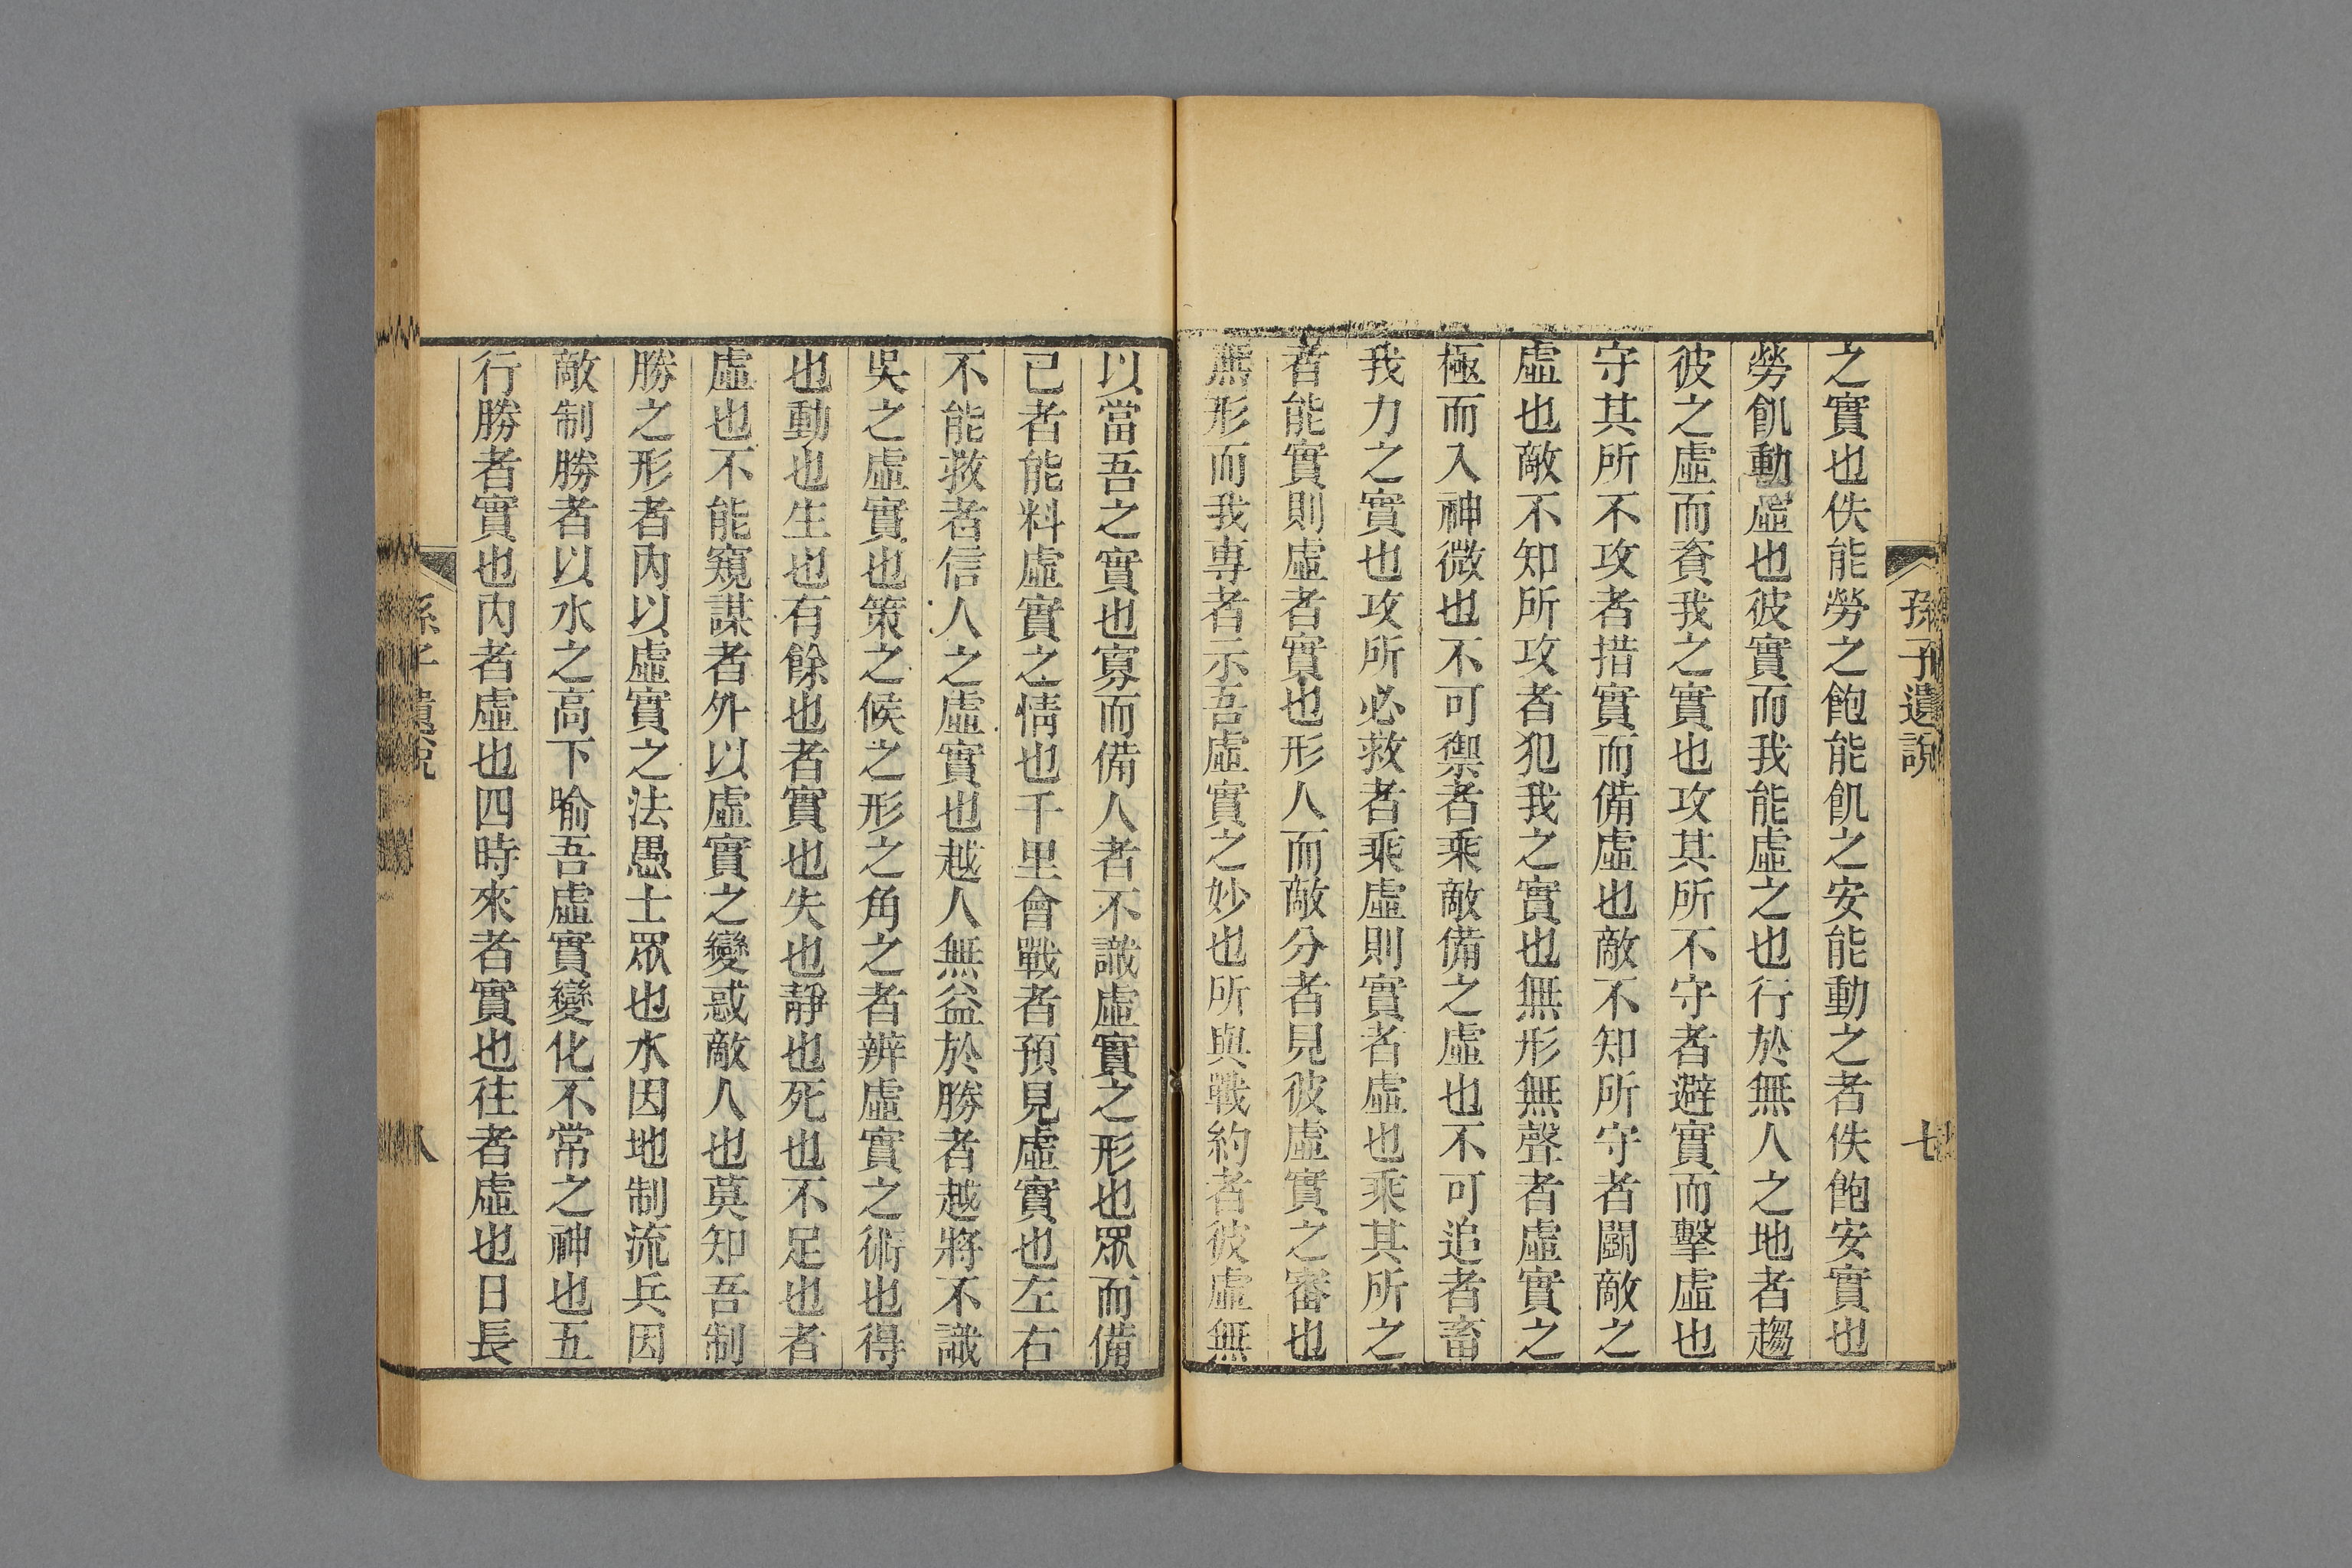 孫子遺說
七
之實也佚能勞之飽能飢之安能動之者佚飽安實也
勞飢動虛也彼實而我能虛之也行於無人之地者趨
彼之虛而資我之實也攻其所不守者避實而擊虛也
守其所不攻者措實而備虛也敵不知所守者鬭敵之
虛也敵不知所攻者犯我之實也無形無聲者虛實之
極而入神微也不可禦者乘敵備之虛也不可追者畜
我力之實也攻所必救者乘虛則實者虛也乘其所之
者能實則虛者實也形人而敵分者見彼虛實之審也
無形而我專者示吾虛實之妙也所與戰約者彼虛無
以當吾之實也寡而備人者不識虛實之形也眾而備
已者能料虛實之情也千里會戰者預見虛實也左右
不能救者信人之虛實也越人無益於勝者越將不識
吳之虛實也策之候之形之角之者辨虛實之術也得
也動也生也有餘也者實也失也靜也死也不足也者
虛也不能窺謀者外以虛實之變惑敵人也莫知吾制
勝之形者內以虛實之法愚士眾也水因地制流兵因
敵制勝者以水之高下喻吾虛實變化不常之神也五
行勝者實也內者虛也四時來者實也往者虛也日長
孫子遺說
八